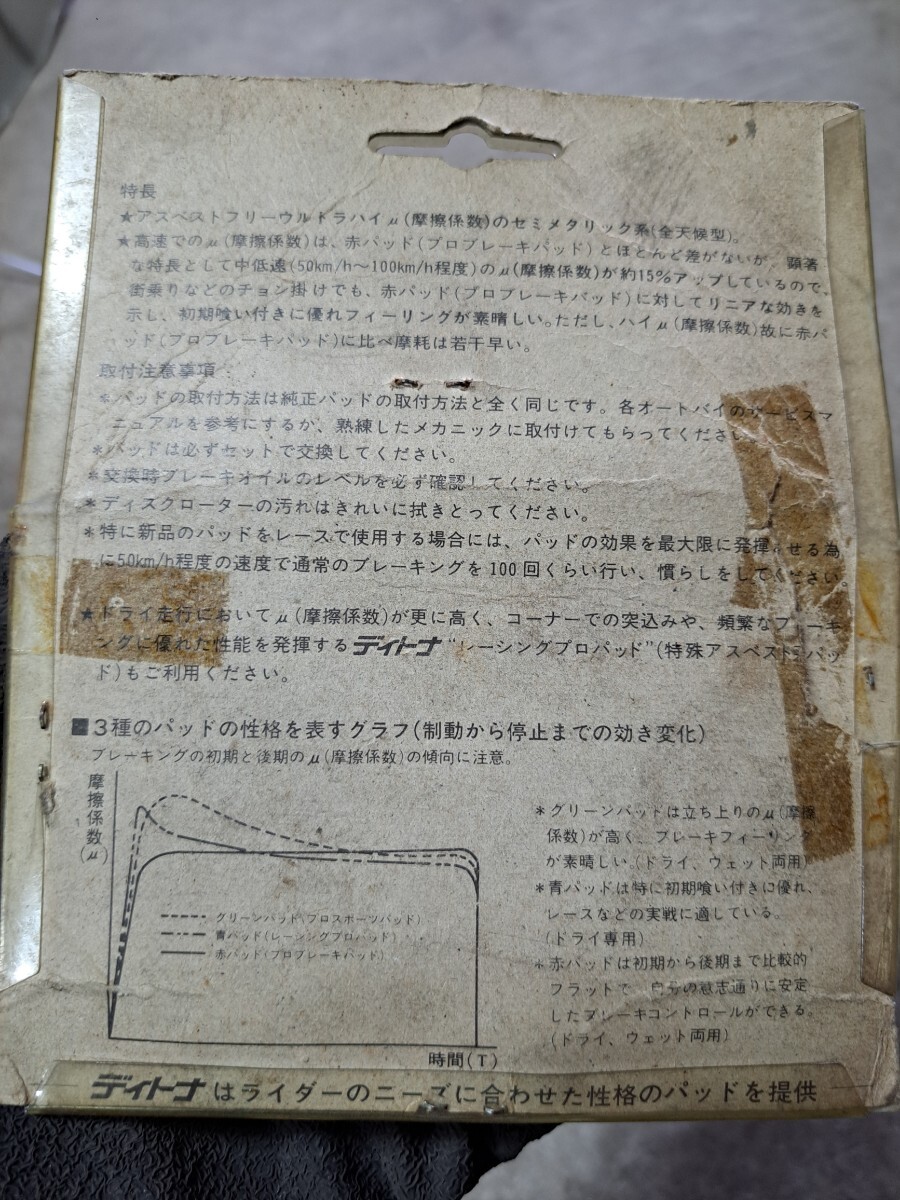 特長
★アスベストフリーウルトラハイμ(摩擦係数)のセミメタリック系(全天候型)。
★高速でのμ(摩擦係数)は、赤パッド(プロブレーキパッド)とほとんど差がないが、顕著
な特長として中低速(50km/h〜100km/h程度)のμ(摩擦係数)が約15%アップしているので、
街乗りなどのチョン掛けでも、赤パッド(プロブレーキパッド)に対してリニアな効きを
示し、初期喰い付きに優れフィーリングが素晴しい。ただし、ハイμ(摩擦係数)故に赤パ
ッド(プロブレーキパッド)に比べ摩耗は若干早い。
取付注意事項
＊パッドの取付方法は純正パッドの取付方法と全く同じです。各オートバイのサービスマ
ニュアルを参考にするか、熟練したメカニックに取付けてもらってください。
＊パッドは必ずセットで交換してください。
＊交換時ブレーキオイルのレベルを必ず確認してください。
＊ディスクローターの汚れはきれいに拭きとってください。
＊特に新品のパッドをレースで使用する場合には、パッドの効果を最大限に発揮させる為
に50km/h程度の速度で通常のブレーキングを100回くらい行い、慣らしをしてください。
★ドライ走行においてμ(摩擦係数)が更に高く、コーナーでの突込みや、頻繁なブレーキ
ングに優れた性能を発揮するデイトナ"レーシングプロパッド"(特殊アスベストパッ
ド)もご利用ください。
■3種のパッドの性格を表すグラフ(制動から停止までの効き変化)
ブレーキングの初期と後期のμ(摩擦係数)の傾向に注意。
摩擦係数(μ)
グリーンパッド(プロスポーツパッド)
青パッド(レーシングプロパッド)
赤パッド(プロブレーキパッド)
時間(T)
＊グリーンパッドは立ち上りのμ(摩擦
係数)が高く、ブレーキフィーリング
が素晴しい。(ドライ、ウェット両用)
＊青パッドは特に初期喰い付きに優れ、
レースなどの実戦に適している。
(ドライ専用)
＊赤パッドは初期から後期まで比較的
フラットで、自分の意志通りに安定
したブレーキコントロールができる。
(ドライ、ウェット両用)
デイトナはライダーのニーズに合わせた性格のパッドを提供